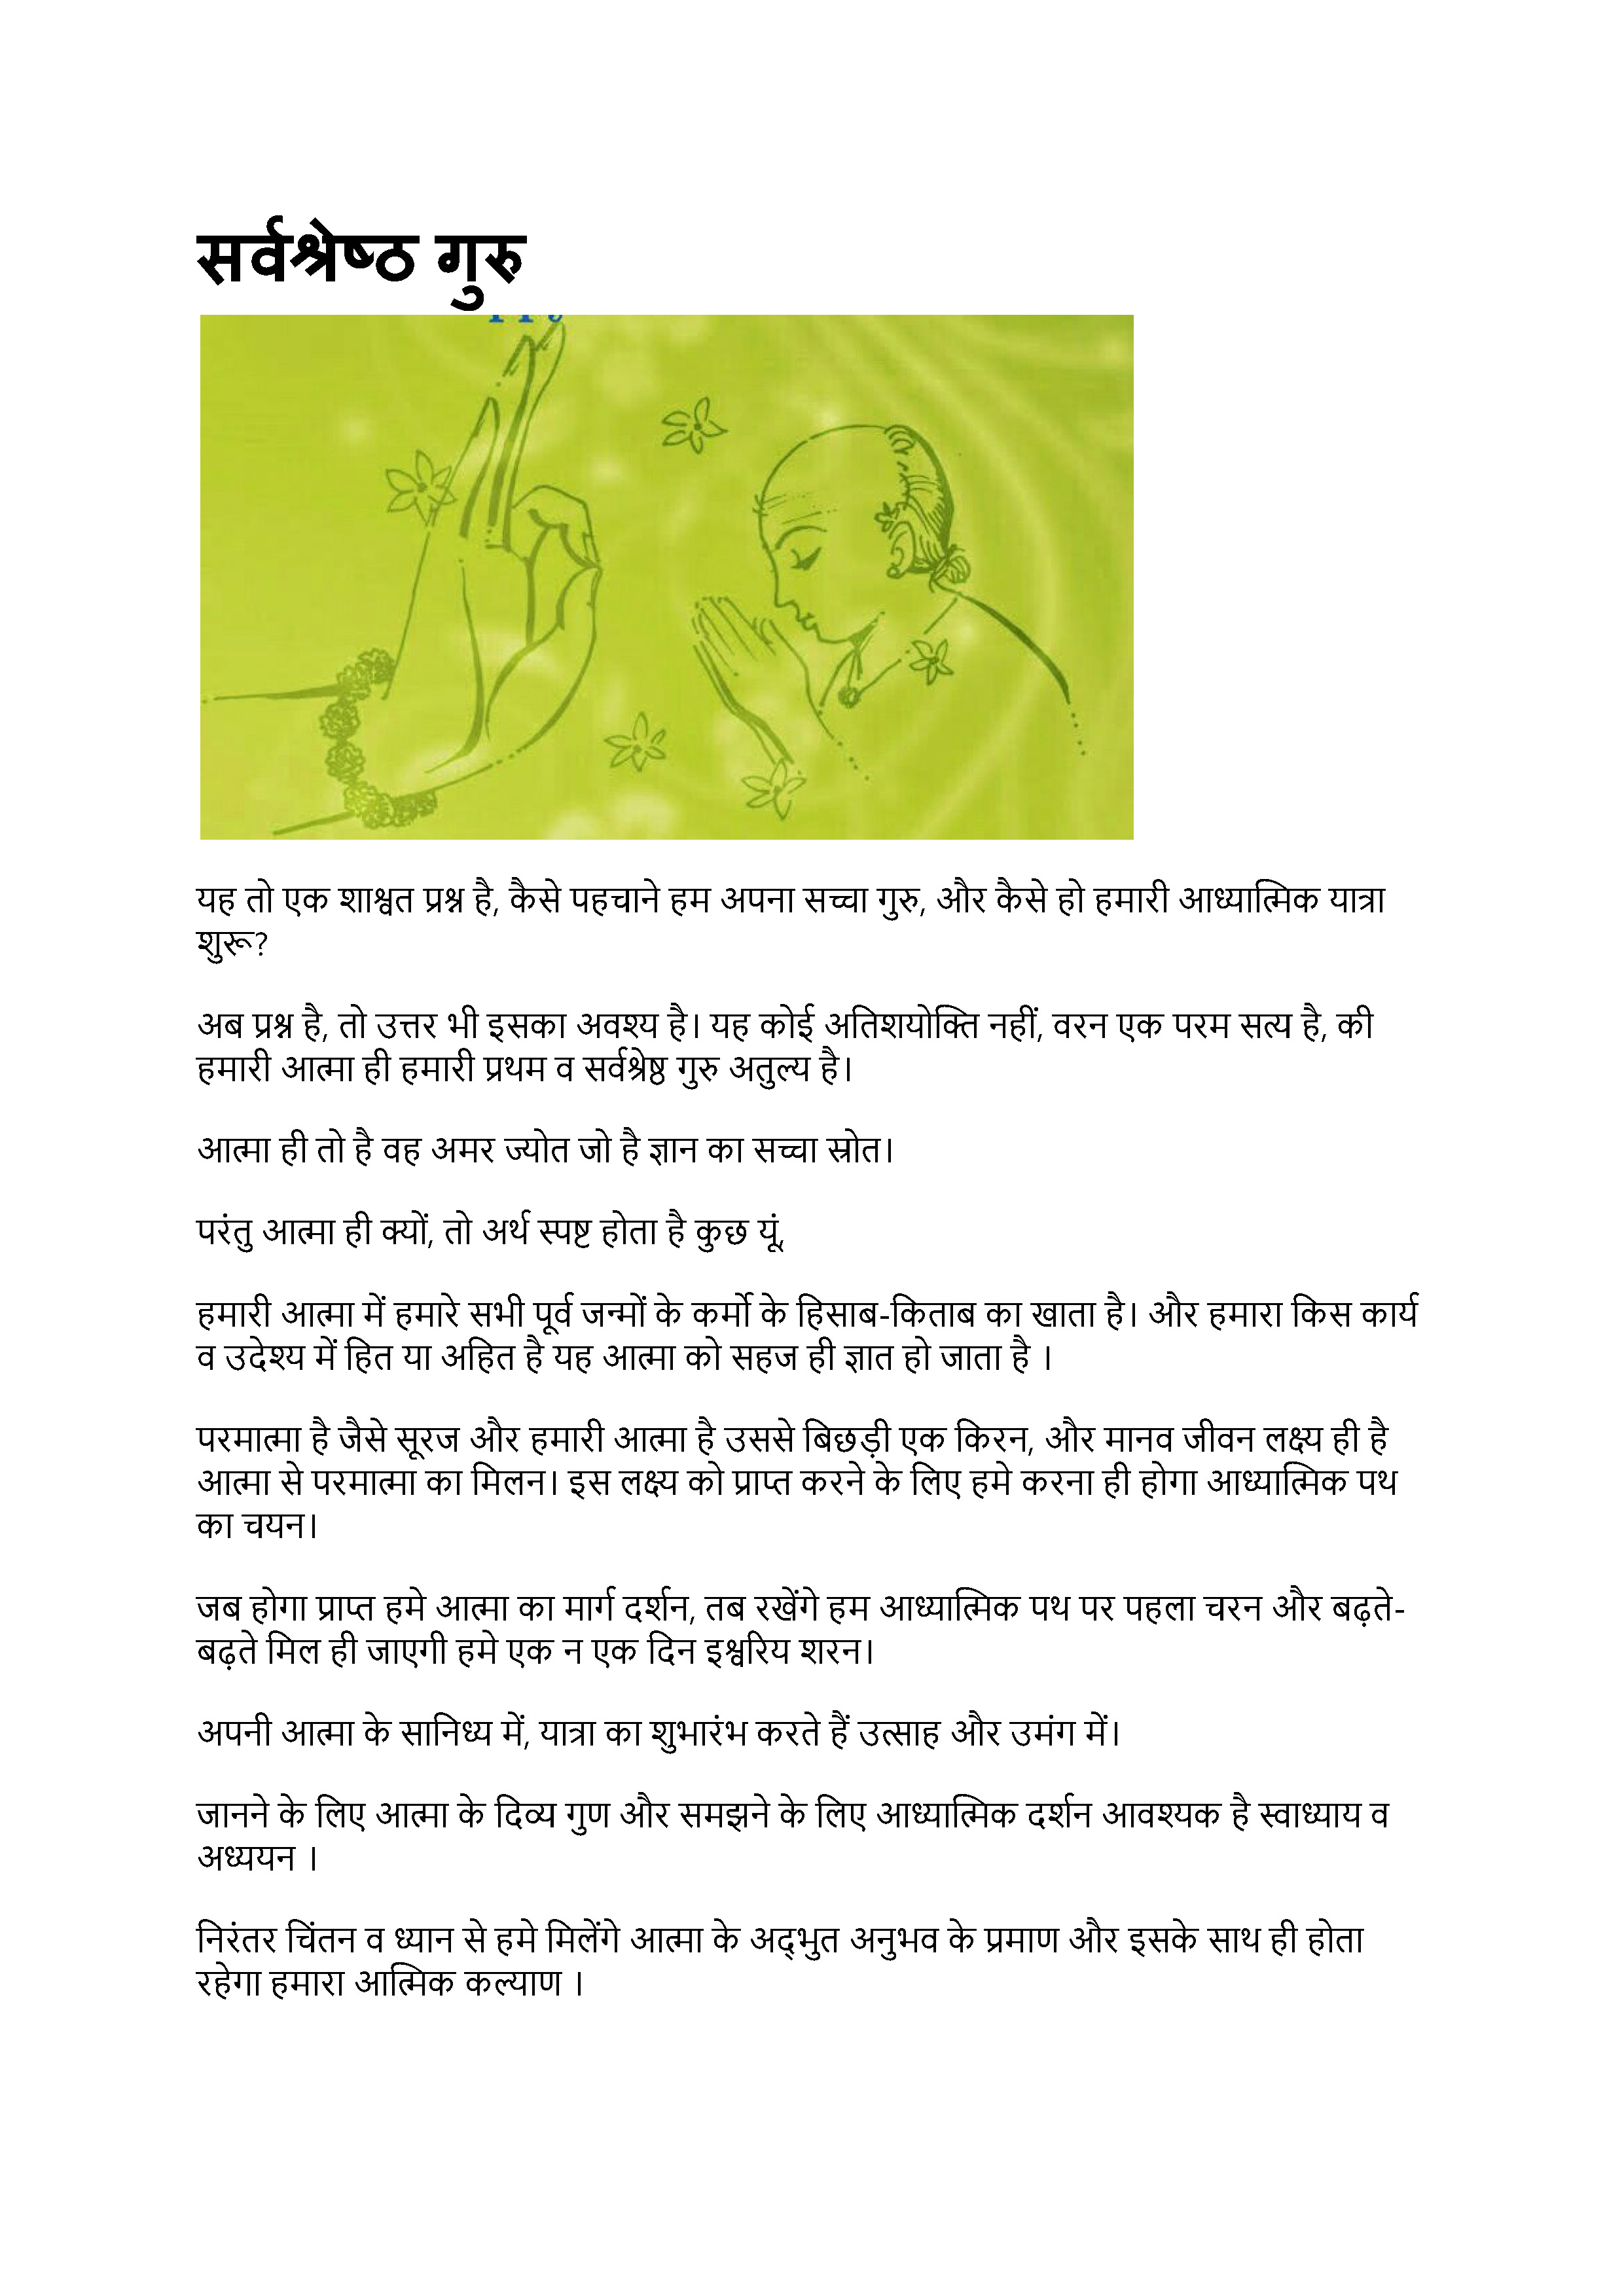 सर्वश्रेष्ठ गुरु
यह तो एक शाश्वत प्रश्न है, कैसे पहचाने हम अपना सच्चा गुरु, और कैसे हो हमारी आध्यात्मिक यात्रा
शुरू?
अब प्रश्न है, तो उत्तर भी इसका अवश्य है। यह कोई अतिशयोक्ति नहीं, वरन एक परम सत्य है, की
हमारी आत्मा ही हमारी प्रथम व सर्वश्रेष्ठ गुरु अतुल्य है।
आत्मा ही तो है वह अमर ज्योत जो है ज्ञान का सच्चा स्रोत।
परंतु आत्मा ही क्यों, तो अर्थ स्पष्ट होता है कुछ यूं,
हमारी आत्मा में हमारे सभी पूर्व जन्मों के कर्मो के हिसाब-किताब का खाता है। और हमारा किस कार्य
व उदेश्य में हित या अहित है यह आत्मा को सहज ही ज्ञात हो जाता है ।
परमात्मा है जैसे सूरज और हमारी आत्मा है उससे बिछड़ी एक किरन, और मानव जीवन लक्ष्य ही है
आत्मा से परमात्मा का मिलन। इस लक्ष्य को प्राप्त करने के लिए हमे करना ही होगा आध्यात्मिक पथ
का चयन।
जब होगा प्राप्त हमे आत्मा का मार्ग दर्शन, तब रखेंगे हम आध्यात्मिक पथ पर पहला चरन और बढ़ते-
बढ़ते मिल ही जाएगी हमे एक न एक दिन इश्वरिय शरन।
अपनी आत्मा के सानिध्य में, यात्रा का शुभारंभ करते हैं उत्साह और उमंग में।
जानने के लिए आत्मा के दिव्य गुण और समझने के लिए आध्यात्मिक दर्शन आवश्यक है स्वाध्याय व
अध्ययन ।
निरंतर चिंतन व ध्यान से हमे मिलेंगे आत्मा के अद्भुत अनुभव के प्रमाण और इसके साथ ही होता
रहेगा हमारा आत्मिक कल्याण ।